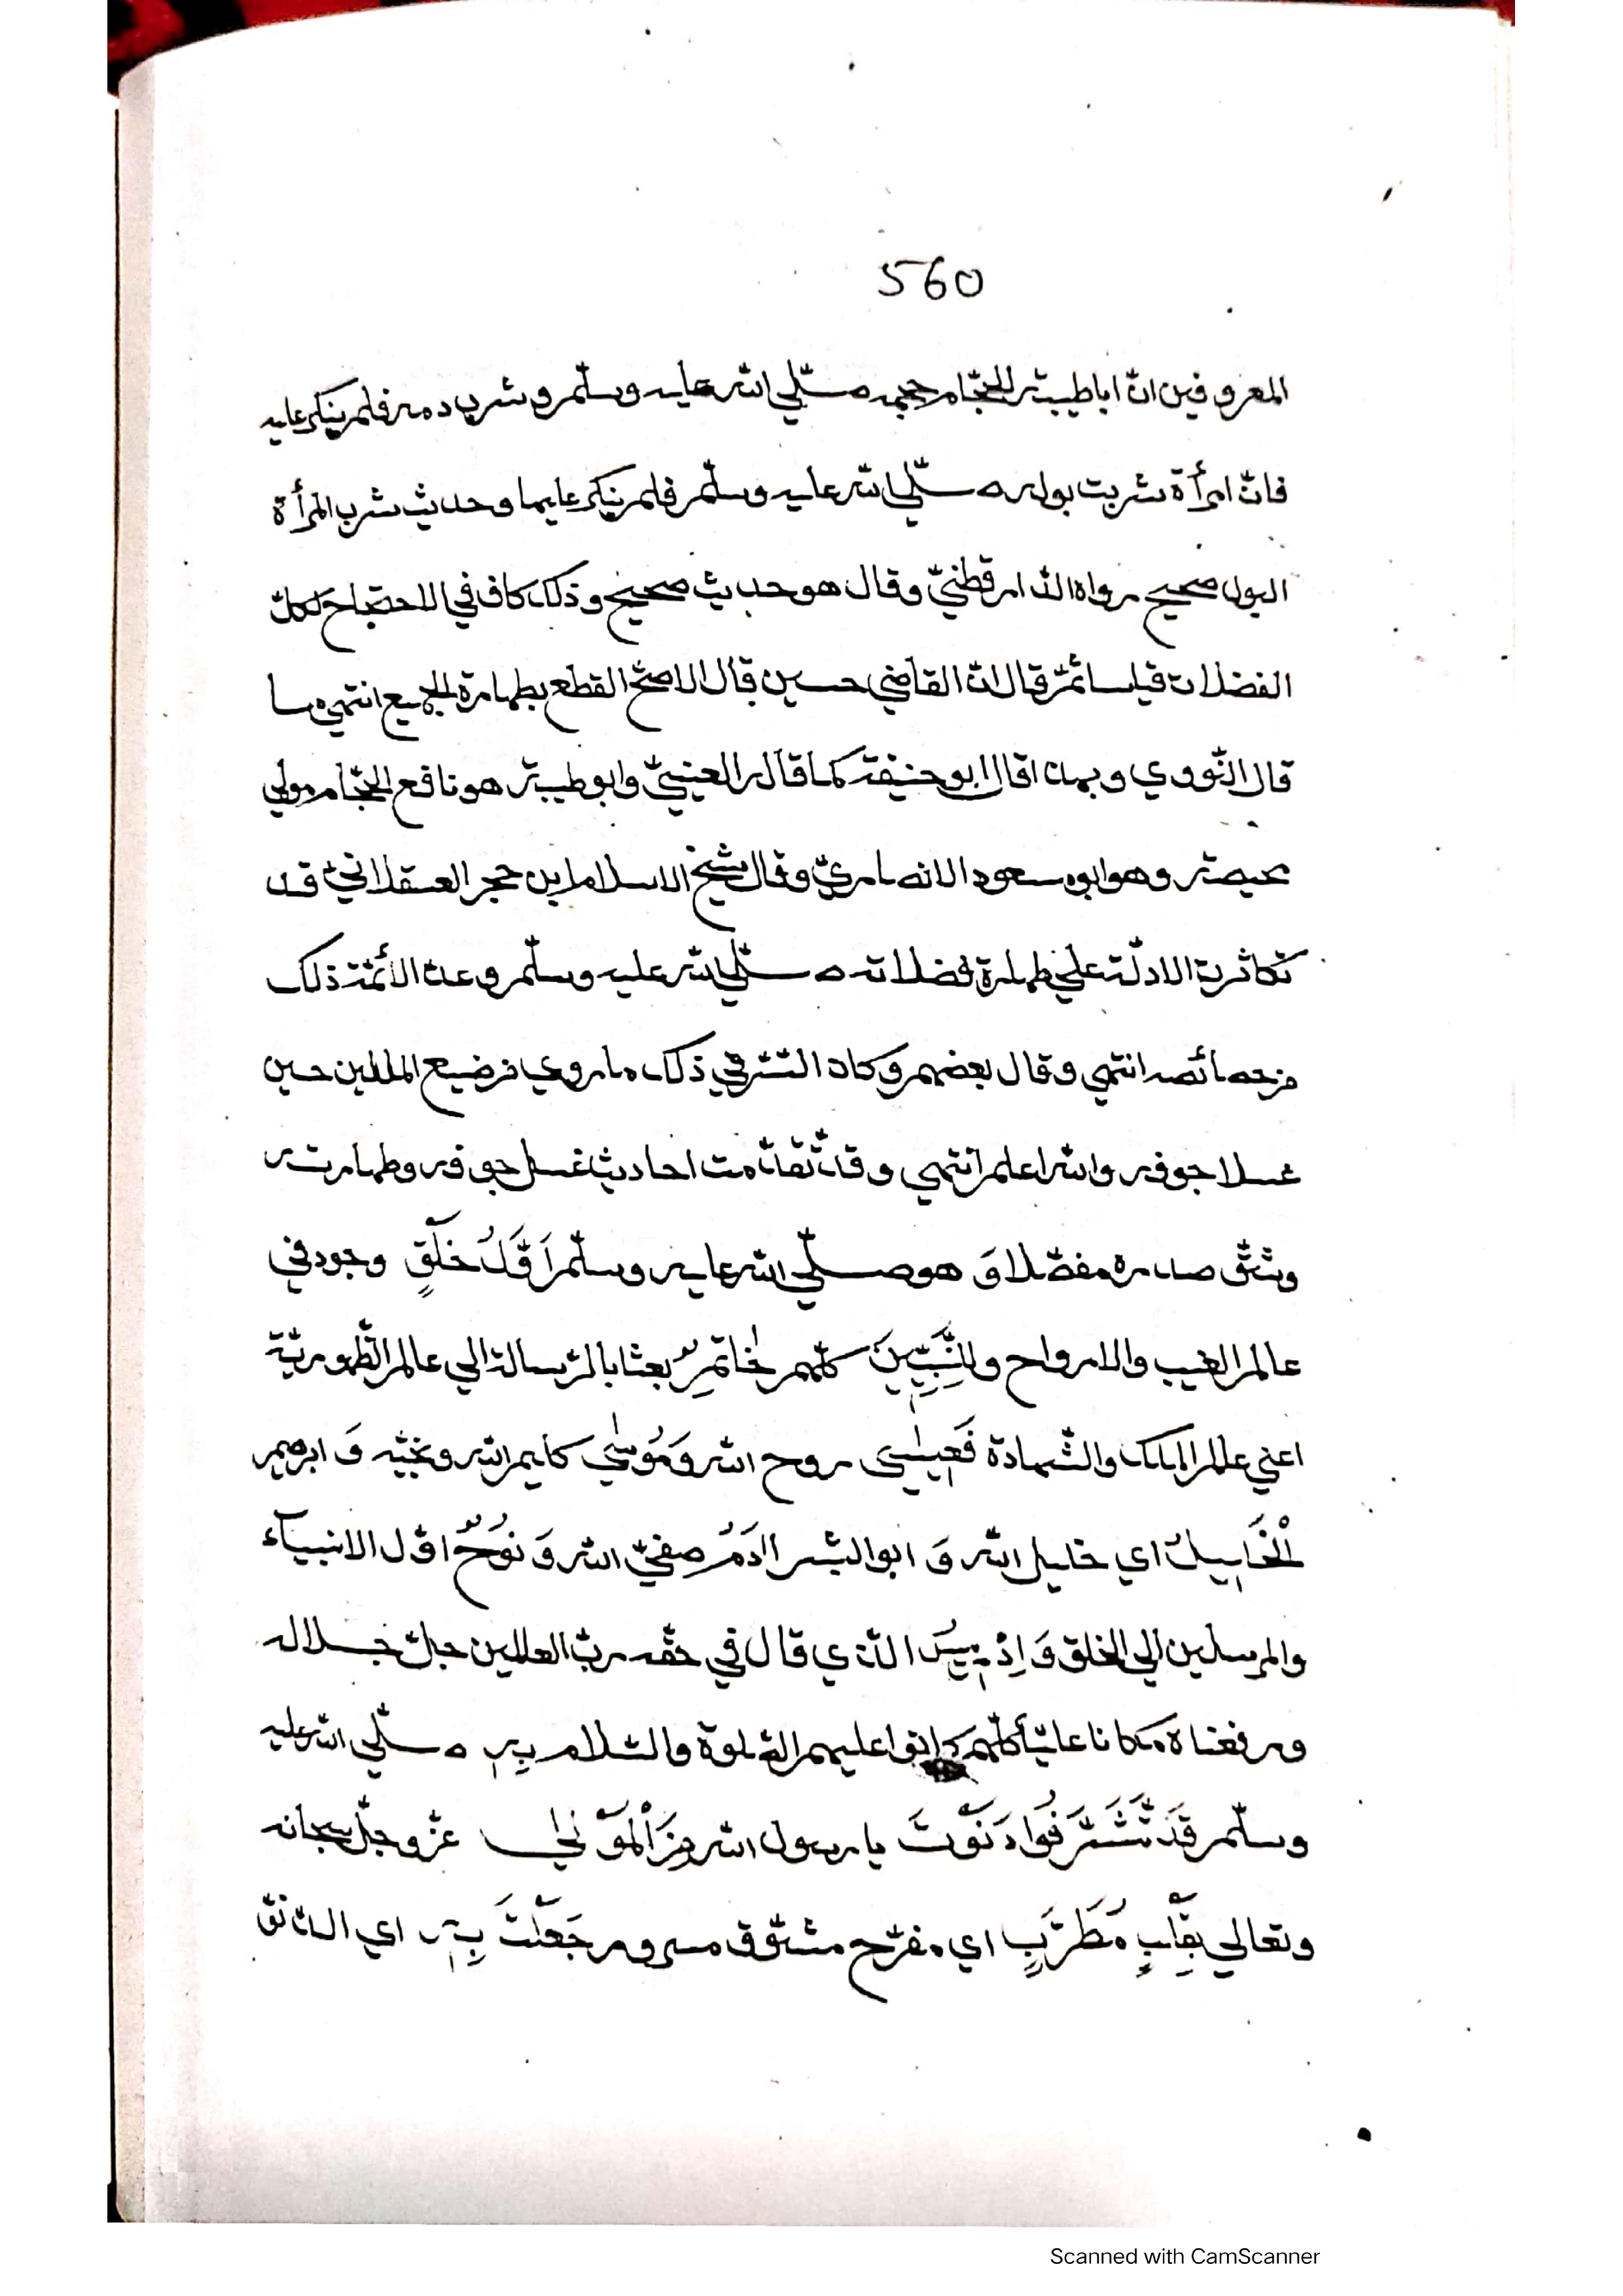 560
المعروفين انّ اباطيبة الحجّام حجمه صلّي الله عليه وسلّم وشرب دمه فلم ينكر عليه
فانّ امرأة شربت بوله صلّي الله عليه وسلّم فلم ينكر عليها وحديث شرب المرأة
البول صحيح رواه الدّارقطنيّ وقال هو حديث صحيح وذلك كاف في الاحتجاج لكلّ
الفضلات قياسا ثمّ قال انّ القاضي حسين قال الاصحّ القطع بطهارة الجميع انتهي ما
قال النّووي وبهذا قال ابو حنيفة كما قاله العينيّ وابو طيبة هو نافع الحجّام مولي
محيصة وهو ابو مسعود الانصاريّ وقال شيخ الاسلام ابن حجر العسقلانيّ قد
تكاثرت الادلّة علي طهارة فضلاته صلّي الله عليه وسلّم وعدّ الأئمّة ذلك
من خصائصه انتهي وقال بعضهم وكان السّرّ في ذلك ما روي من ضيع الملكين حين
غسلا جوفه والله اعلم انتهي وقد تقدّمت احاديث غسل جوفه وطهارته
وشقّ صدره مفصّلا وَ هو صلّي الله عليه وسلّم اَوَّلُ خَلْقٍ وجود في
عالم الغيب والارواح وللنَّبِيِّينَ كلّهم خَاتَمٌ بعثا بالرّسالة الي عالم الظّهوريّة
اعني عالم الملك والشّهادة فَعِيسٰي روح الله وَمُوسٰي كليم الله ونجيّه وَ ابرهيم
الْخَلِيلُ اي خليل الله وَ ابو البشر اٰدَمُ صفيّ الله وَ نُوحٌ اوّل الانبيآء
والمرسلين الي الخلق وَ اِدْرِيسُ الّذي قال في حقّه ربّ العالمين جلّ جلاله
ورفعناه مكانا عليّا كلّهم كانوا عليهم الصّلوة والسّلام بِهِ صلّي الله عليه
وسلّم قَدْ تَشَرَّفُوا دَنَوْتَ يا رسول الله مِنَ الْمَوْلٰي عزّ وجلّ سبحانه
وتعالي بِقَلْبٍ مُطَرَّبٍ اي مفرّح مشوّق مسرور جَعَلْتَ بِهِ اي الدّنوّ
Scanned with CamScanner